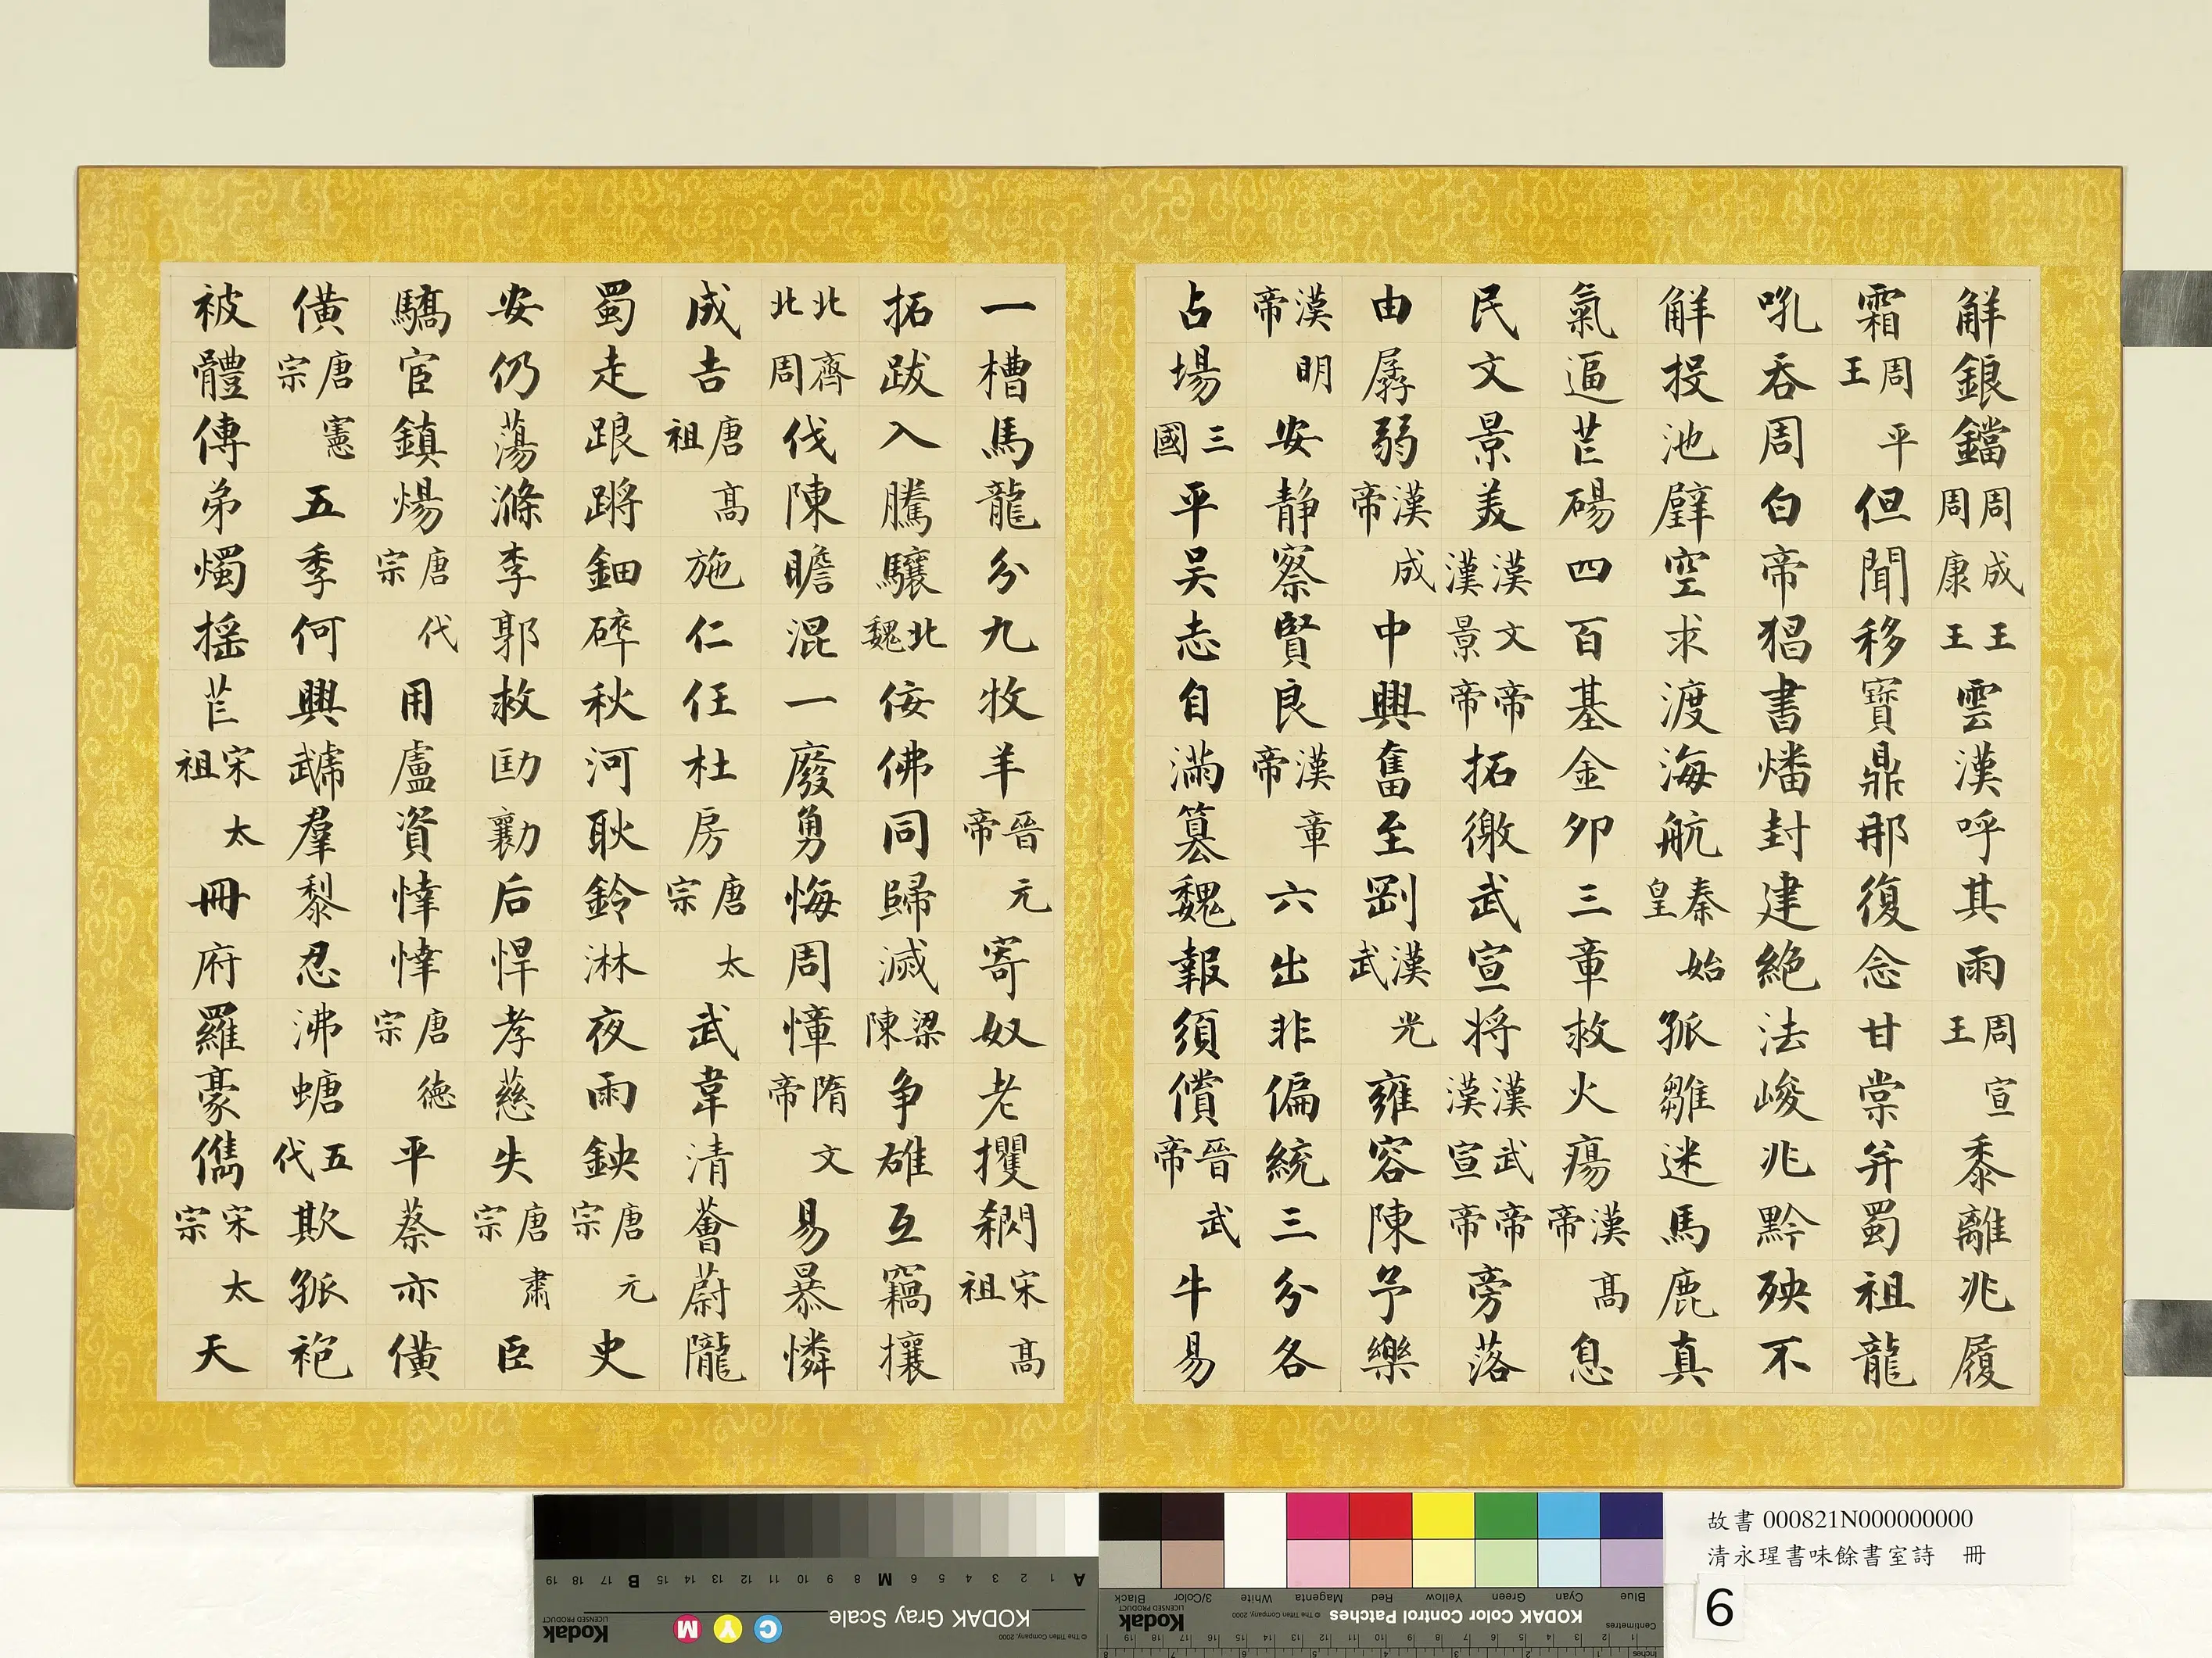 解銀鐺周成王周康王雲漢呼其雨周宣王黍離兆履
霜周平王但聞移寶鼎那復念甘棠并蜀祖龍
吼吞周白帝猖書燔封建絶法峻兆黔殃不
解投池璧空求渡海航秦始皇孤雛迷馬鹿真
氣逼芒碭四百基金卯三章救火瘍漢高帝息
民文景美漢文帝漢景帝拓徼武宣將漢武帝漢宣帝旁落
由孱弱漢成帝中興奮至剛漢光武雍容陳予樂
漢明帝安静察賢良漢章帝六出非偏統三分各
占場三國平吴志自滿篡魏報須償晉武帝牛易
一槽馬龍分九牧羊晉元帝寄奴老攫宋高祖
拓跋入騰驤北魏佞佛同歸滅梁陳争雄互竊攘
北齊北周伐陳瞻混一廢勇悔周慞隋文帝易暴憐
成吉唐高祖施仁任杜房唐太宗武韋清薈蔚隴
蜀走踉蹡鈿碎秋河耿鈴淋夜雨鉠唐元宗史
安仍蕩滌李郭救劻勷后悍孝慈失唐肅宗臣
驕宦鎮煬唐代宗用盧資悻悻唐德宗平蔡亦僙
僙唐憲宗五季何興虣羣黎忍沸螗五代欺孤袍
被體傳弟燭揺芒宋太祖冊府羅豪儁宋太宗天
故書 000821N000000000
清永瑆書味餘書室詩 冊
6
KODAK Gray Scale
KODAK Color Control Patches
Kodak
LICENSED PRODUCT
© The Tiffen Company, 2000
Blue Cyan Green Yellow Red Magenta White 3/Color Black
Centimetres
Inches
C Y M
A M B